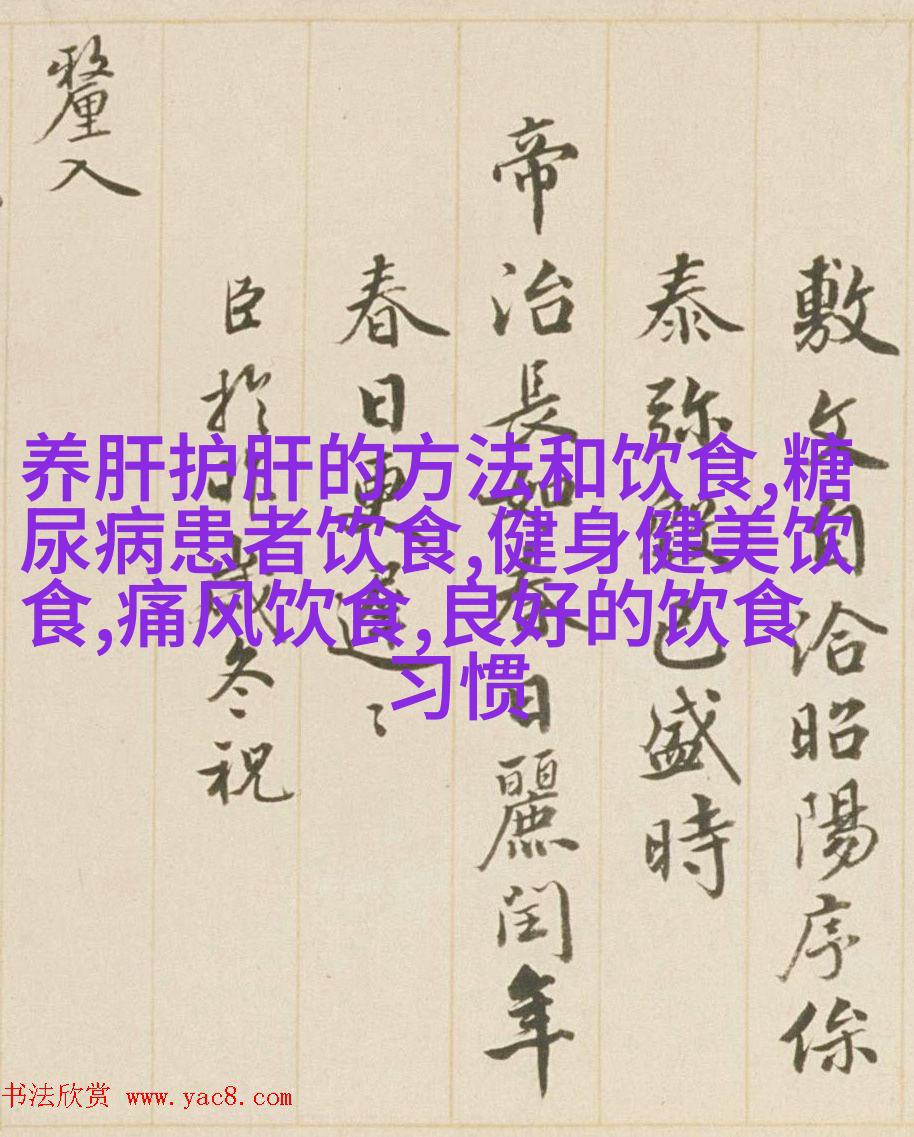 养肝护肝的方法和饮食,糖
尿病患者饮食,健身健美饮
食,痛风饮食,良好的饮食
习惯
敷文洽昭陽序
泰弥已盛時
帝治長如春日麗閏年
春日更遲〻
臣於昨歲冬祝
釐入
书法欣赏 www.yac8.com